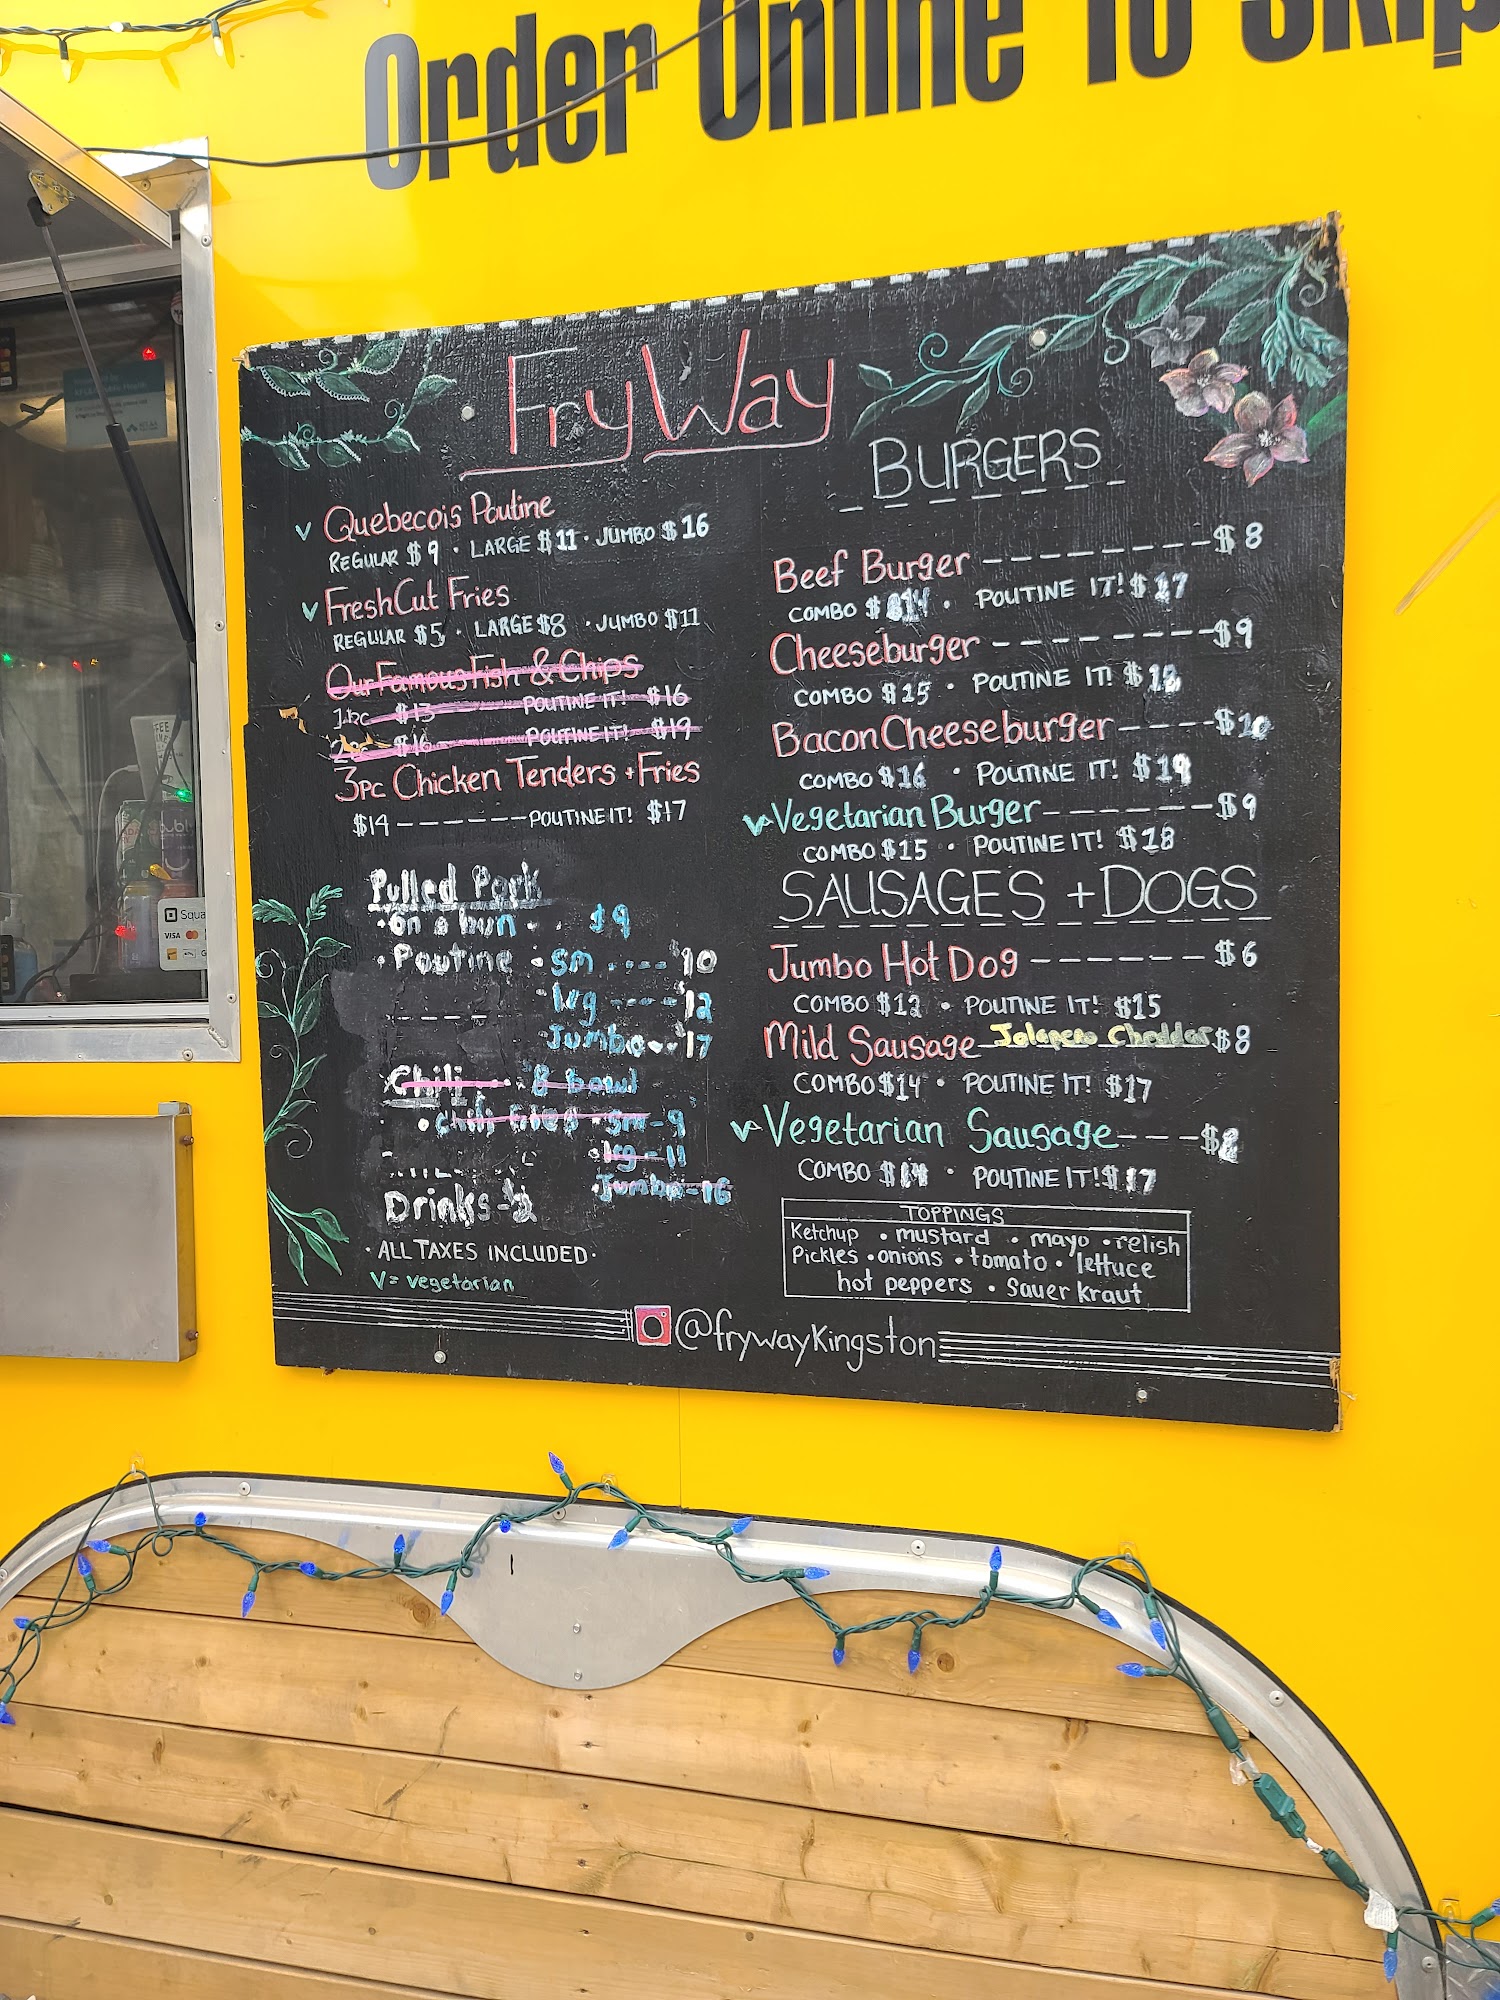 Order Online To Skip
Fry Way
V Quebecois Poutine
REGULAR $9 · LARGE $11 · JUMBO $16
V Fresh Cut Fries
REGULAR $5 · LARGE $8 · JUMBO $11
Our Famous Fish & Chips
1pc $13 POUTINE IT! $16
2pc $16 POUTINE IT! $19
3pc Chicken Tenders + Fries
$14 ------- POUTINE IT! $17
Pulled Pork
· on a bun · · $9
· Poutine · sm ---- $10
· lrg ---- $12
Jumbo $17
Chili 8 bowl
· chili fries · sm - 9
· lrg - 11
Jumbo - 16
Drinks - $2
· ALL TAXES INCLUDED ·
V = vegetarian
BURGERS
Beef Burger -------- $8
COMBO $14 · POUTINE IT! $17
Cheeseburger -------- $9
COMBO $15 · POUTINE IT! $18
Bacon Cheeseburger ---- $10
COMBO $16 · POUTINE IT! $19
V Vegetarian Burger ------ $9
COMBO $15 · POUTINE IT! $18
SAUSAGES + DOGS
Jumbo Hot Dog ------ $6
COMBO $12 · POUTINE IT! $15
Mild Sausage Jalapeno Cheddar $8
COMBO $14 · POUTINE IT! $17
V Vegetarian Sausage --- $8
COMBO $14 · POUTINE IT! $17
TOPPINGS
Ketchup · mustard · mayo · relish
Pickles · onions · tomato · lettuce
hot peppers · Sauer kraut
@frywayKingston
Squa
VISA